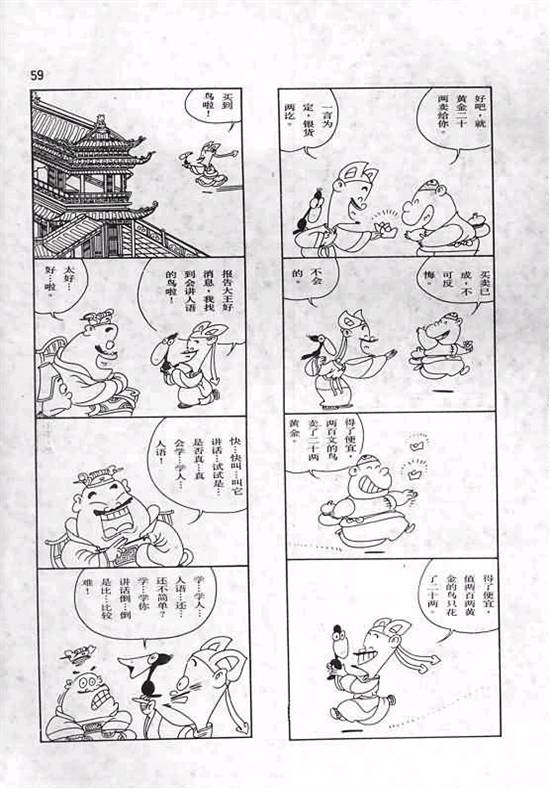 59
好吧，就
黄金二十
两卖给你。
一言为
定，银货
两讫。
买卖已
成，不
可反
悔。
不会
的。
得了便宜，
两百文的鸟
卖了二十两
黄金。
得了便宜，
值两百两黄
金的鸟只花
了二十两。
买到
鸟啦！
报告大王好
消息，我找
到会讲人语
的鸟啦！
太好…
好…啦。
快…快叫…叫它
讲话…试试是…
是否真…真
会学…学人…
人语！
学…学人…
人语…还…
还不简单？
学…学你
讲话倒…倒
是比…比较
难！